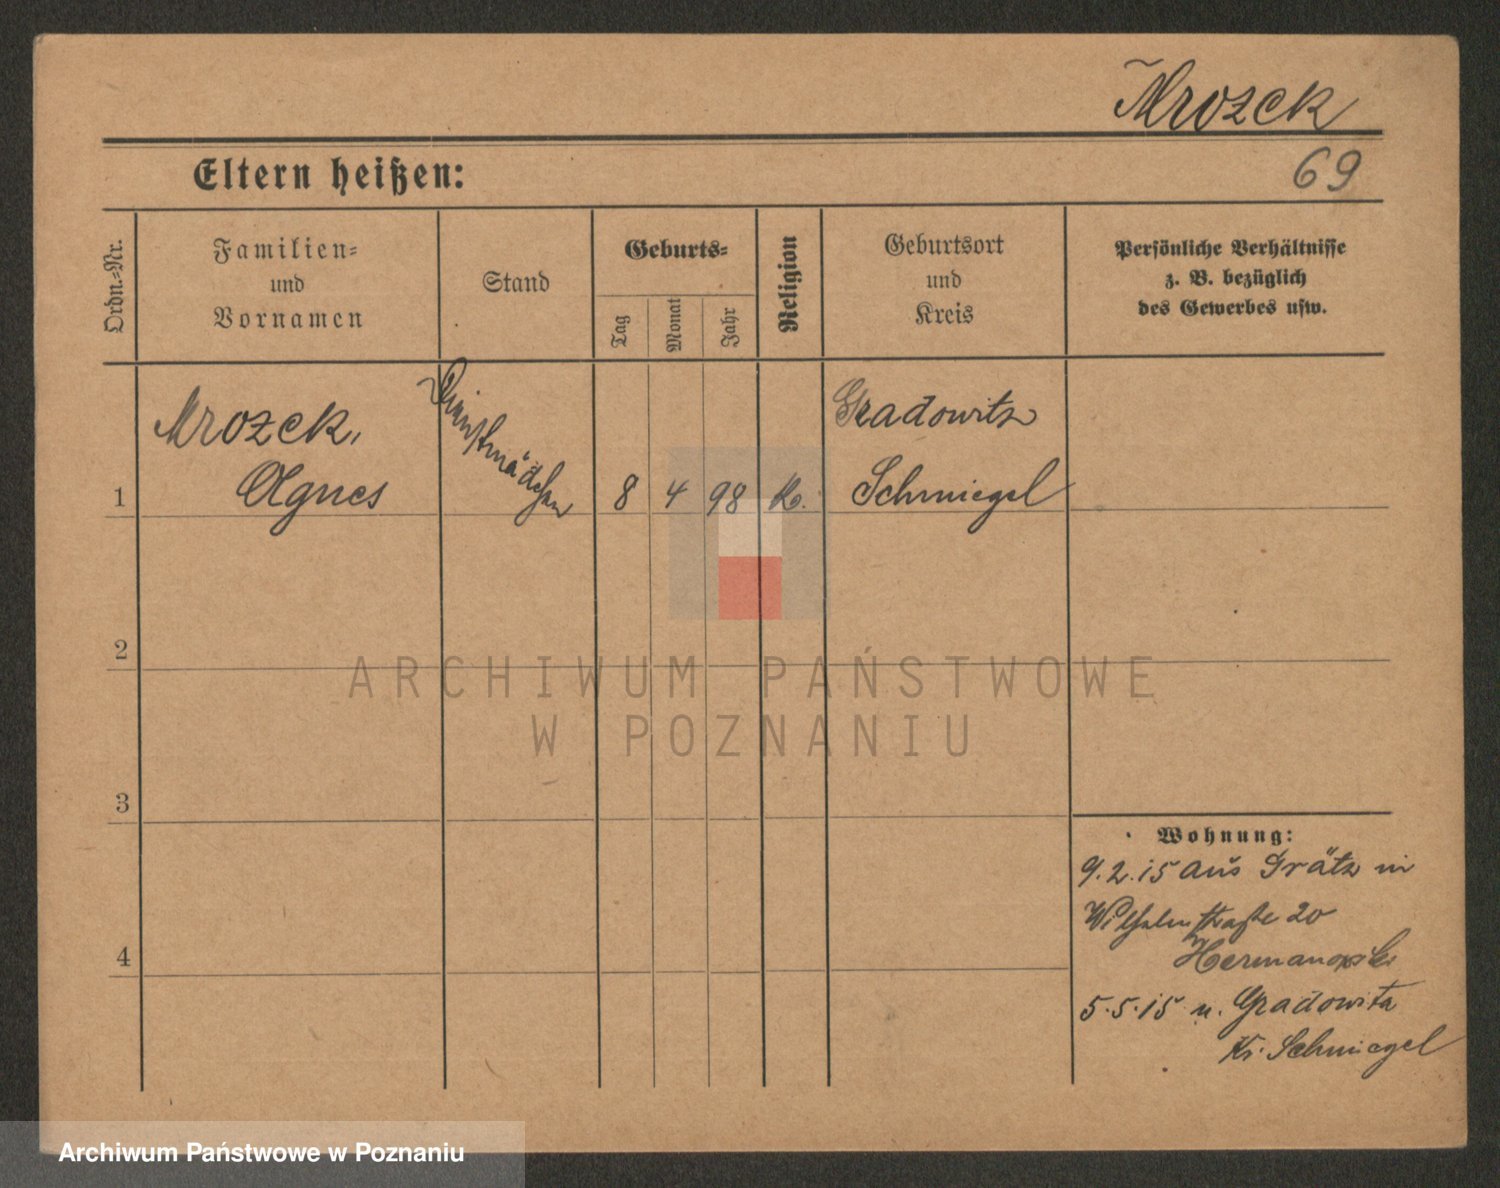 Mrozek
Eltern heißen:
69
Ordn.-Nr.
Familien-
und
Vornamen
Stand
Geburts-
Tag
Monat
Jahr
Religion
Geburtsort
und
Kreis
Persönliche Verhältnisse
z. B. bezüglich
des Gewerbes usw.
Mrozek,
Agnes
Dienstmädchen
Gradowitz
1
8
4
98
K.
Schmiegel
2
3
4
Wohnung:
9.2.15 aus Grätz in
Wilhelmstraße 20
Hermanowski
5.5.15 n. Gradowitz
Kr. Schmiegel
ARCHIWUM PAŃSTWOWE
W POZNANIU
Archiwum Państwowe w Poznaniu